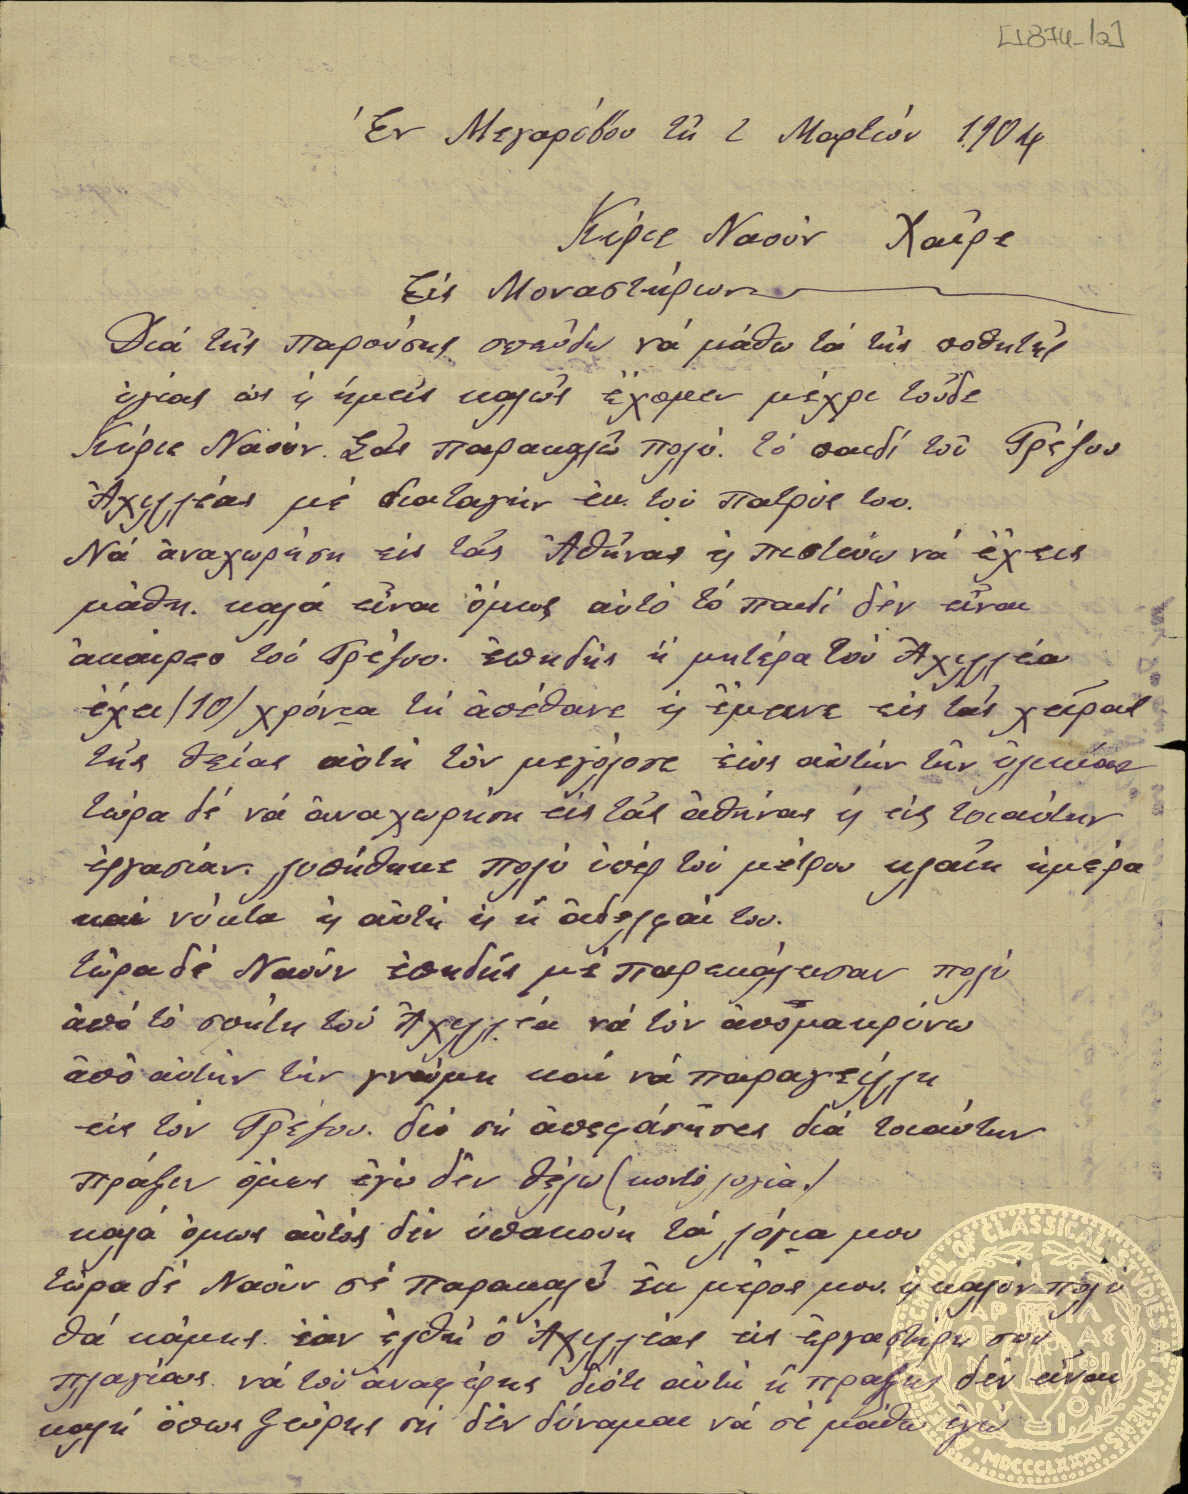 [1874-/2]
Ἐν Μεγαρόβου τῇ 2 Μαρτίου 1904
Κύριε Ναούν Χαῖρε
Εἰς Μοναστήριον
Διά τῆς παρούσης σπεύδω νά μάθω τά τῆς ποθητῆς
ὑγίας ὡς ἡμεῖς καλῶς ἔχομεν μέχρι τοῦδε
Κύριε Ναούν. Σᾶς παρακαλῶ πολύ. τό παιδί τοῦ Γρέζου
Ἀχιλλέας μέ διαταγήν ἐκ τοῦ πατρός του.
Νά ἀναχωρήση εἰς τάς Ἀθήνας κ πιστεύω νά ἔχεις
μάθη. καλά εἶναι ὅμως αὐτό τό παιδί δέν εἶναι
ἀκαίρεο τοῦ Γρέζου. ἐπηδής ἡ μητέρα τοῦ Ἀχιλλέα
ἔχει /10/ χρόνια τή ἀπέθανε κ ἔμεινε εἰς τάς χεῖρας
τῆς θείας αὐτή τόν μεγόλοσε ἕως αὐτήν τήν ὑλικίας
τώρα δέ νά ἀναχωρήση εἰς τάς ἀθήνας κ εἰς τοιαύτην
ἐργασίαν. λυπήθηκε πολύ ὑπέρ τοῦ μέτρου κλαίη ἡμέρα
καί νύκτα κ αὐτή κ ἡ ἀδελφαί του.
τώρα δέ Ναούν ἐπηδής μέ παρεκάλεσαν πολύ
ἀπό τό σπήτη τοῦ Ἀχιλλέα νά τόν ἀπομακρύνω
ἀπό αὐτήν τήν γνώμη καί νά παραγγείλλη
εἰς τόν Γρέζου. διό τή ἀπεφάσησες διά τοιαύτην
πράξιν ὅμως ἐγώ δέν θέλω (κοντολογία)
καλά ὅμως αὐτός δέν ὑπακούη τά λόγια μου
τώρα δέ Ναούν σέ παρακαλῶ ἐκ μέρος μου. κ καλόν πολύ
θά κάμης ἐάν ἐλθῆ ὁ Ἀχιλλέας εἰς ἐργαστήρι σου
πλαγίως νά τοῦ ἀναφέρης διότι αὐτή ἡ πράξης δέν εἶναι
καλή ὅπως ξεύρης τή δέν δύναμαι νά σέ μάθω ἐγώ